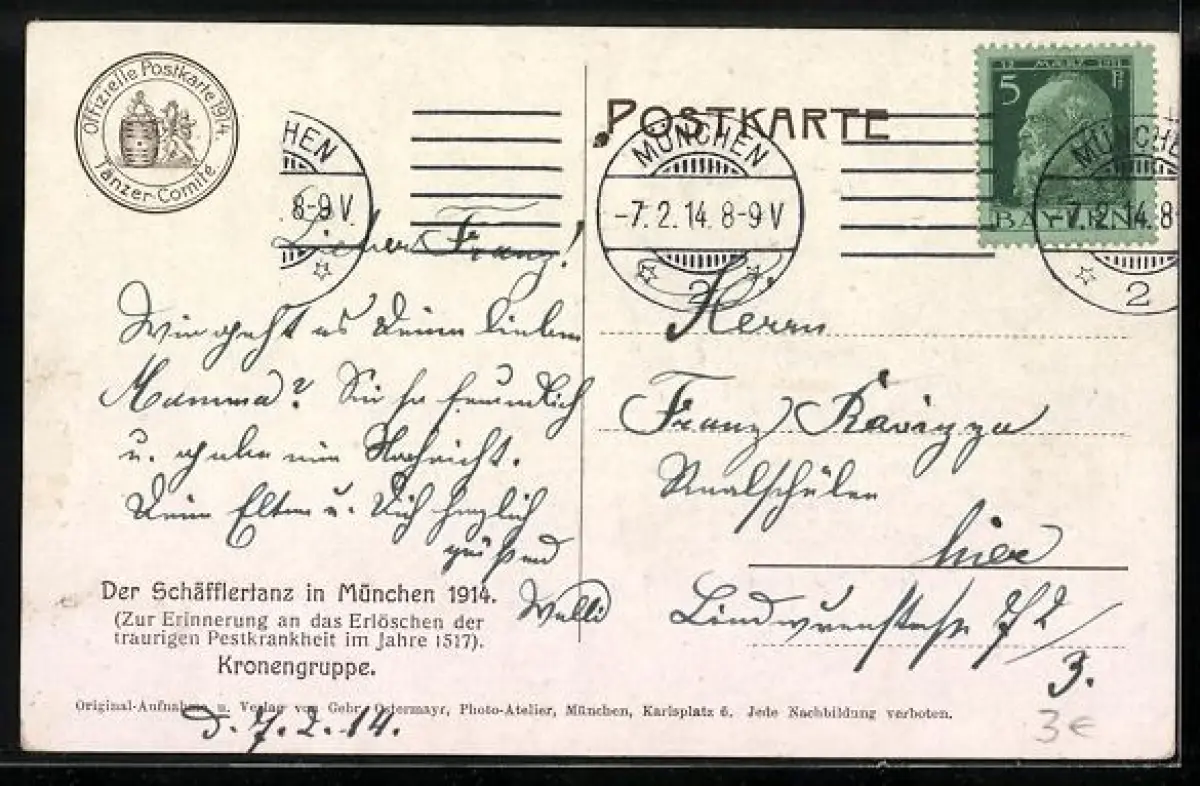 Offizielle Postkarte 1914.
Tänzer-Comité
POSTKARTE
12 MÄRZ 1911
5 Pf
BAYERN
CHEN
8-9 V.
MÜNCHEN
-7.2.14. 8-9 V
2
MÜNCHE
-7.2.14. 8-
2
Lieber Franz!
Wie geht es Deiner lieben
Mamma? Sei so freundlich
u. gebe mir Nachricht.
Deine Eltern u. Dich herzlich
grüßend
Welli
d. 7.2.14.
Herrn
Franz
Realschüler
hier
Lindwurmstraße 72/
3.
Der Schäfflertanz in München 1914.
(Zur Erinnerung an das Erlöschen der
traurigen Pestkrankheit im Jahre 1517).
Kronengruppe.
Original-Aufnahme u. Verlag von Gebr. Ostermayr, Photo-Atelier, München, Karlsplatz 6. Jede Nachbildung verboten.
3€